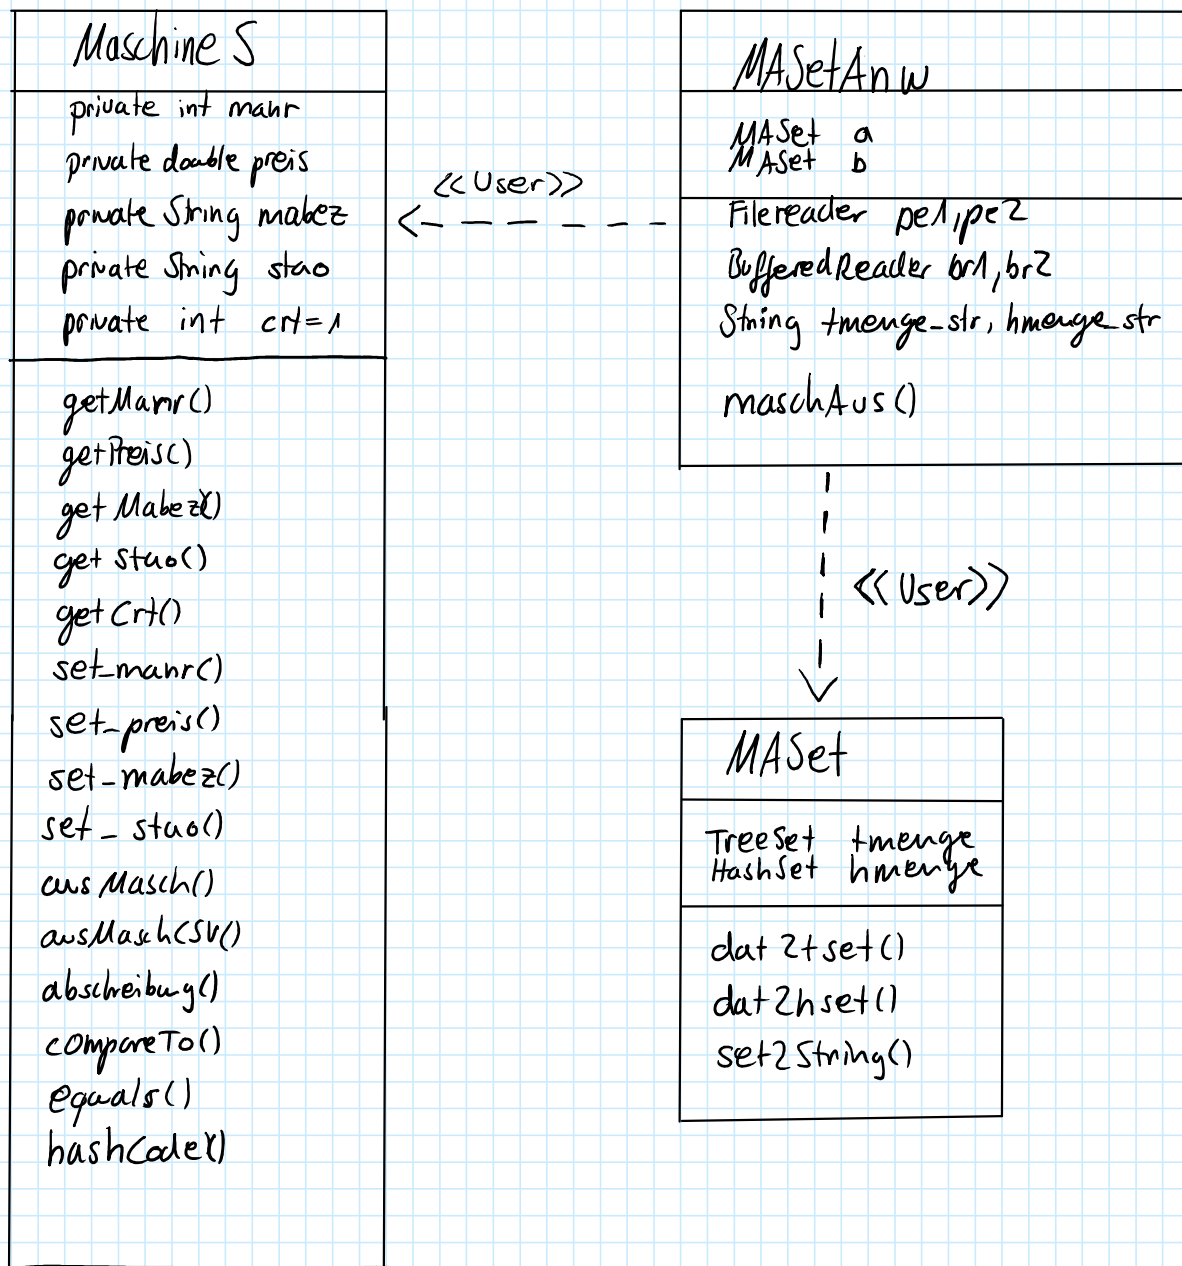 MaschineS
private int manr
private double preis
private String mabez
private String stao
private int crt=1
getManr()
getPreis()
getMabez()
get stao()
getCrt()
set_manr()
set_preis()
set_mabez()
set_stao()
ausMasch()
ausMaschCSV()
abschreibung()
compareTo()
equals()
hashCode()
<<User>>
MASetAnw
MASet a
MASet b
Filereader pe1,pe2
BufferedReader br1,br2
String tmenge_str, hmenge_str
maschAus()
<<User>>
MASet
TreeSet tmenge
HashSet hmenge
dat2tset()
dat2hset()
set2String()